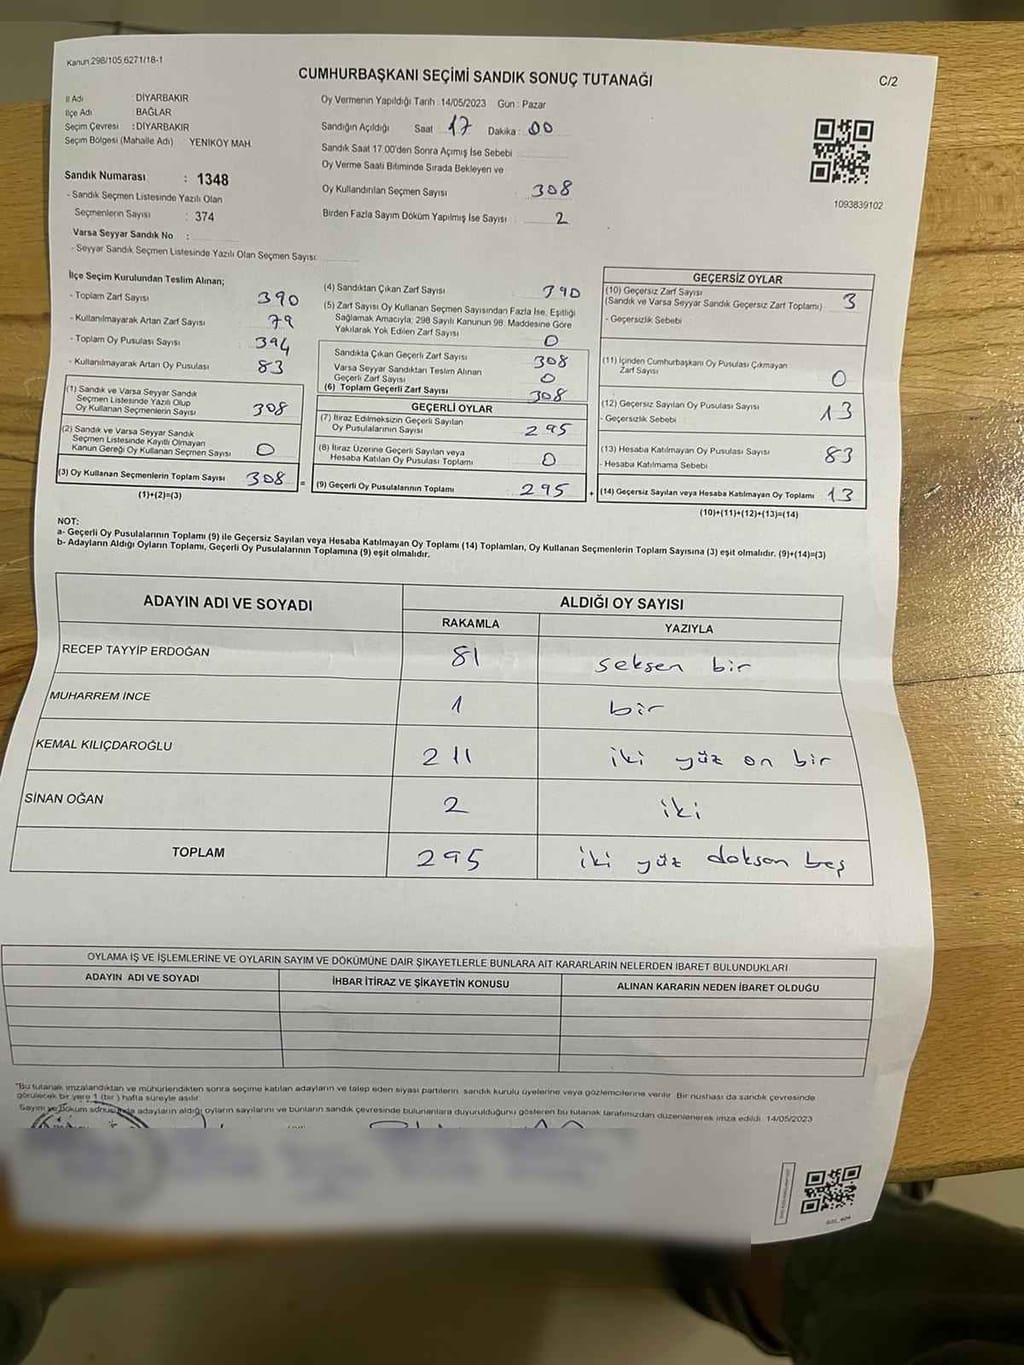 Kanun 298/105,6271/18-1
CUMHURBAŞKANI SEÇİMİ SANDIK SONUÇ TUTANAĞI
C/2
İl Adı : DİYARBAKIR
İlçe Adı : BAĞLAR
Seçim Çevresi : DİYARBAKIR
Seçim Bölgesi (Mahalle Adı) YENİKÖY MAH.
Oy Vermenin Yapıldığı Tarih : 14/05/2023 Gün : Pazar
Sandığın Açıldığı Saat 17 Dakika : 00
Sandık Saat 17.00'den Sonra Açımış İse Sebebi
Oy Verme Saati Bitiminde Sırada Bekleyen ve
Oy Kullandırılan Seçmen Sayısı 308
Birden Fazla Sayım Döküm Yapılmış İse Sayısı : 2
1093839102
Sandık Numarası : 1348
- Sandık Seçmen Listesinde Yazılı Olan
Seçmenlerin Sayısı : 374
Varsa Seyyar Sandık No :
- Seyyar Sandık Seçmen Listesinde Yazılı Olan Seçmen Sayısı:
İlçe Seçim Kurulundan Teslim Alınan;
- Toplam Zarf Sayısı 390
- Kullanılmayarak Artan Zarf Sayısı 79
- Toplam Oy Pusulası Sayısı 394
- Kullanılmayarak Artan Oy Pusulası 83
(1) Sandık ve Varsa Seyyar Sandık
Seçmen Listesinde Yazılı Olup
Oy Kullanan Seçmenlerin Sayısı 308
(2) Sandık ve Varsa Seyyar Sandık
Seçmen Listesinde Kayıtlı Olmayan
Kanun Gereği Oy Kullanan Seçmen Sayısı 0
(3) Oy Kullanan Seçmenlerin Toplam Sayısı 308
(1)+(2)=(3)
(4) Sandıktan Çıkan Zarf Sayısı 390
(5) Zarf Sayısı Oy Kullanan Seçmen Sayısından Fazla İse, Eşitliği
Sağlamak Amacıyla, 298 Sayılı Kanunun 98. Maddesine Göre
Yakılarak Yok Edilen Zarf Sayısı 0
Sandıkta Çıkan Geçerli Zarf Sayısı 308
Varsa Seyyar Sandıktan Teslim Alınan
Geçerli Zarf Sayısı 0
(6) Toplam Geçerli Zarf Sayısı 308
GEÇERLİ OYLAR
(7) İtiraz Edilmeksizin Geçerli Sayılan
Oy Pusulalarının Sayısı 295
(8) İtiraz Üzerine Geçerli Sayılan veya
Hesaba Katılan Oy Pusulası Toplamı 0
= (9) Geçerli Oy Pusulalarının Toplamı 295
GEÇERSİZ OYLAR
(10) Geçersiz Zarf Sayısı
(Sandık ve Varsa Seyyar Sandık Geçersiz Zarf Toplamı) 3
- Geçersizlik Sebebi
(11) İçinden Cumhurbaşkanı Oy Pusulası Çıkmayan
Zarf Sayısı 0
(12) Geçersiz Sayılan Oy Pusulası Sayısı 13
- Geçersizlik Sebebi
(13) Hesaba Katılmayan Oy Pusulası Sayısı 83
- Hesaba Katılmama Sebebi
+ (14) Geçersiz Sayılan veya Hesaba Katılmayan Oy Toplamı 13
(10)+(11)+(12)+(13)=(14)
NOT:
a- Geçerli Oy Pusulalarının Toplamı (9) ile Geçersiz Sayılan veya Hesaba Katılmayan Oy Toplamı (14) Toplamları, Oy Kullanan Seçmenlerin Toplam Sayısına (3) eşit olmalıdır. (9)+(14)=(3)
b- Adayların Aldığı Oyların Toplamı, Geçerli Oy Pusulalarının Toplamına (9) eşit olmalıdır.
ADAYIN ADI VE SOYADI ALDIĞI OY SAYISI
RAKAMLA YAZIYLA
RECEP TAYYİP ERDOĞAN 81 seksen bir
MUHARREM İNCE 1 bir
KEMAL KILIÇDAROĞLU 211 iki yüz on bir
SİNAN OĞAN 2 iki
TOPLAM 295 iki yüz doksan beş
OYLAMA İŞ VE İŞLEMLERİNE VE OYLARIN SAYIM VE DÖKÜMÜNE DAİR ŞİKAYETLERLE BUNLARA AİT KARARLARIN NELERDEN İBARET BULUNDUKLARI
ADAYIN ADI VE SOYADI İHBAR İTİRAZ VE ŞİKAYETİN KONUSU ALINAN KARARIN NEDEN İBARET OLDUĞU
"Bu tutanak imzalandıktan ve mühürlendikten sonra seçime katılan adayların ve talep eden siyasi partilerin sandık kurulu üyelerine veya gözlemcilerine verilir. Bir nüshası da sandık çevresinde
görülecek bir yere 1 (bir) hafta süreyle asılır.
Sayım ve Döküm sonucunda adayların aldığı oyların sayılarını ve bunların sandık çevresinde bulunanlara duyurulduğunu gösteren bu tutanak tarafımızdan düzenlenerek imza edildi. 14/05/2023